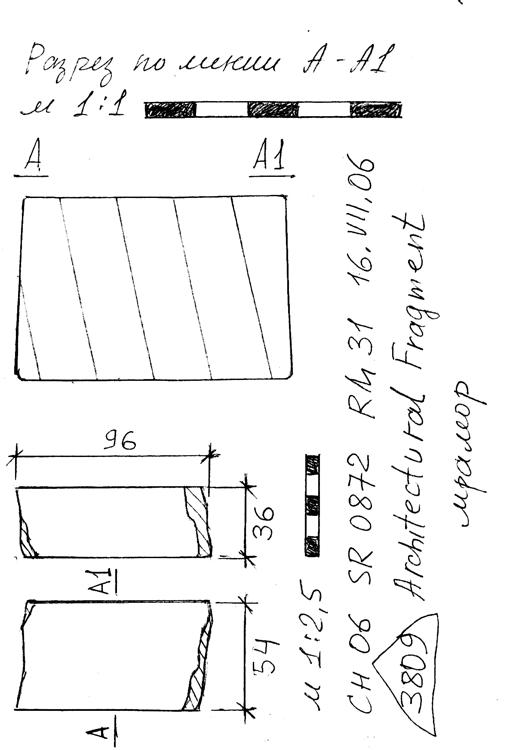 Разрез по линии А-А1
м 1:1
А А1
96
36
А1
54
А
м 1:2,5
CH 06 SR 0872 RM 31 16.VII.06
3809 Architectural Fragment
мрамор